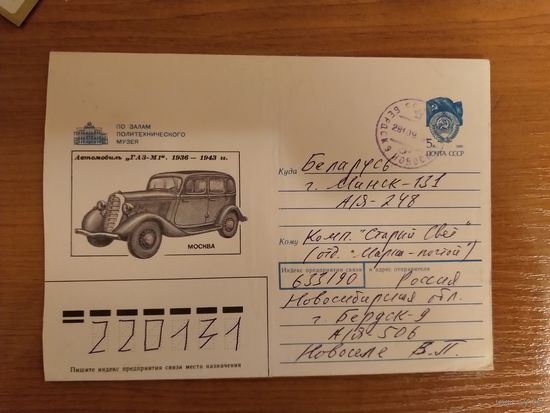 ПО ЗАЛАМ
ПОЛИТЕХНИЧЕСКОГО
МУЗЕЯ
Автомобиль „ГАЗ-М1“. 1936 - 1943 гг.
МОСКВА
5к
ПОЧТА СССР
БЕРДСК
Куда Беларусь
г. Минск-131
А/Я-248
Кому Комп. "Старый Свет"
(отд. "Марка-почтой")
Индекс предприятия связи и адрес отправителя
633190 Россия
Новосибирская обл.
г. Бердск-9
А/Я-506
В.П.
220131
Пишите индекс предприятия связи места назначения